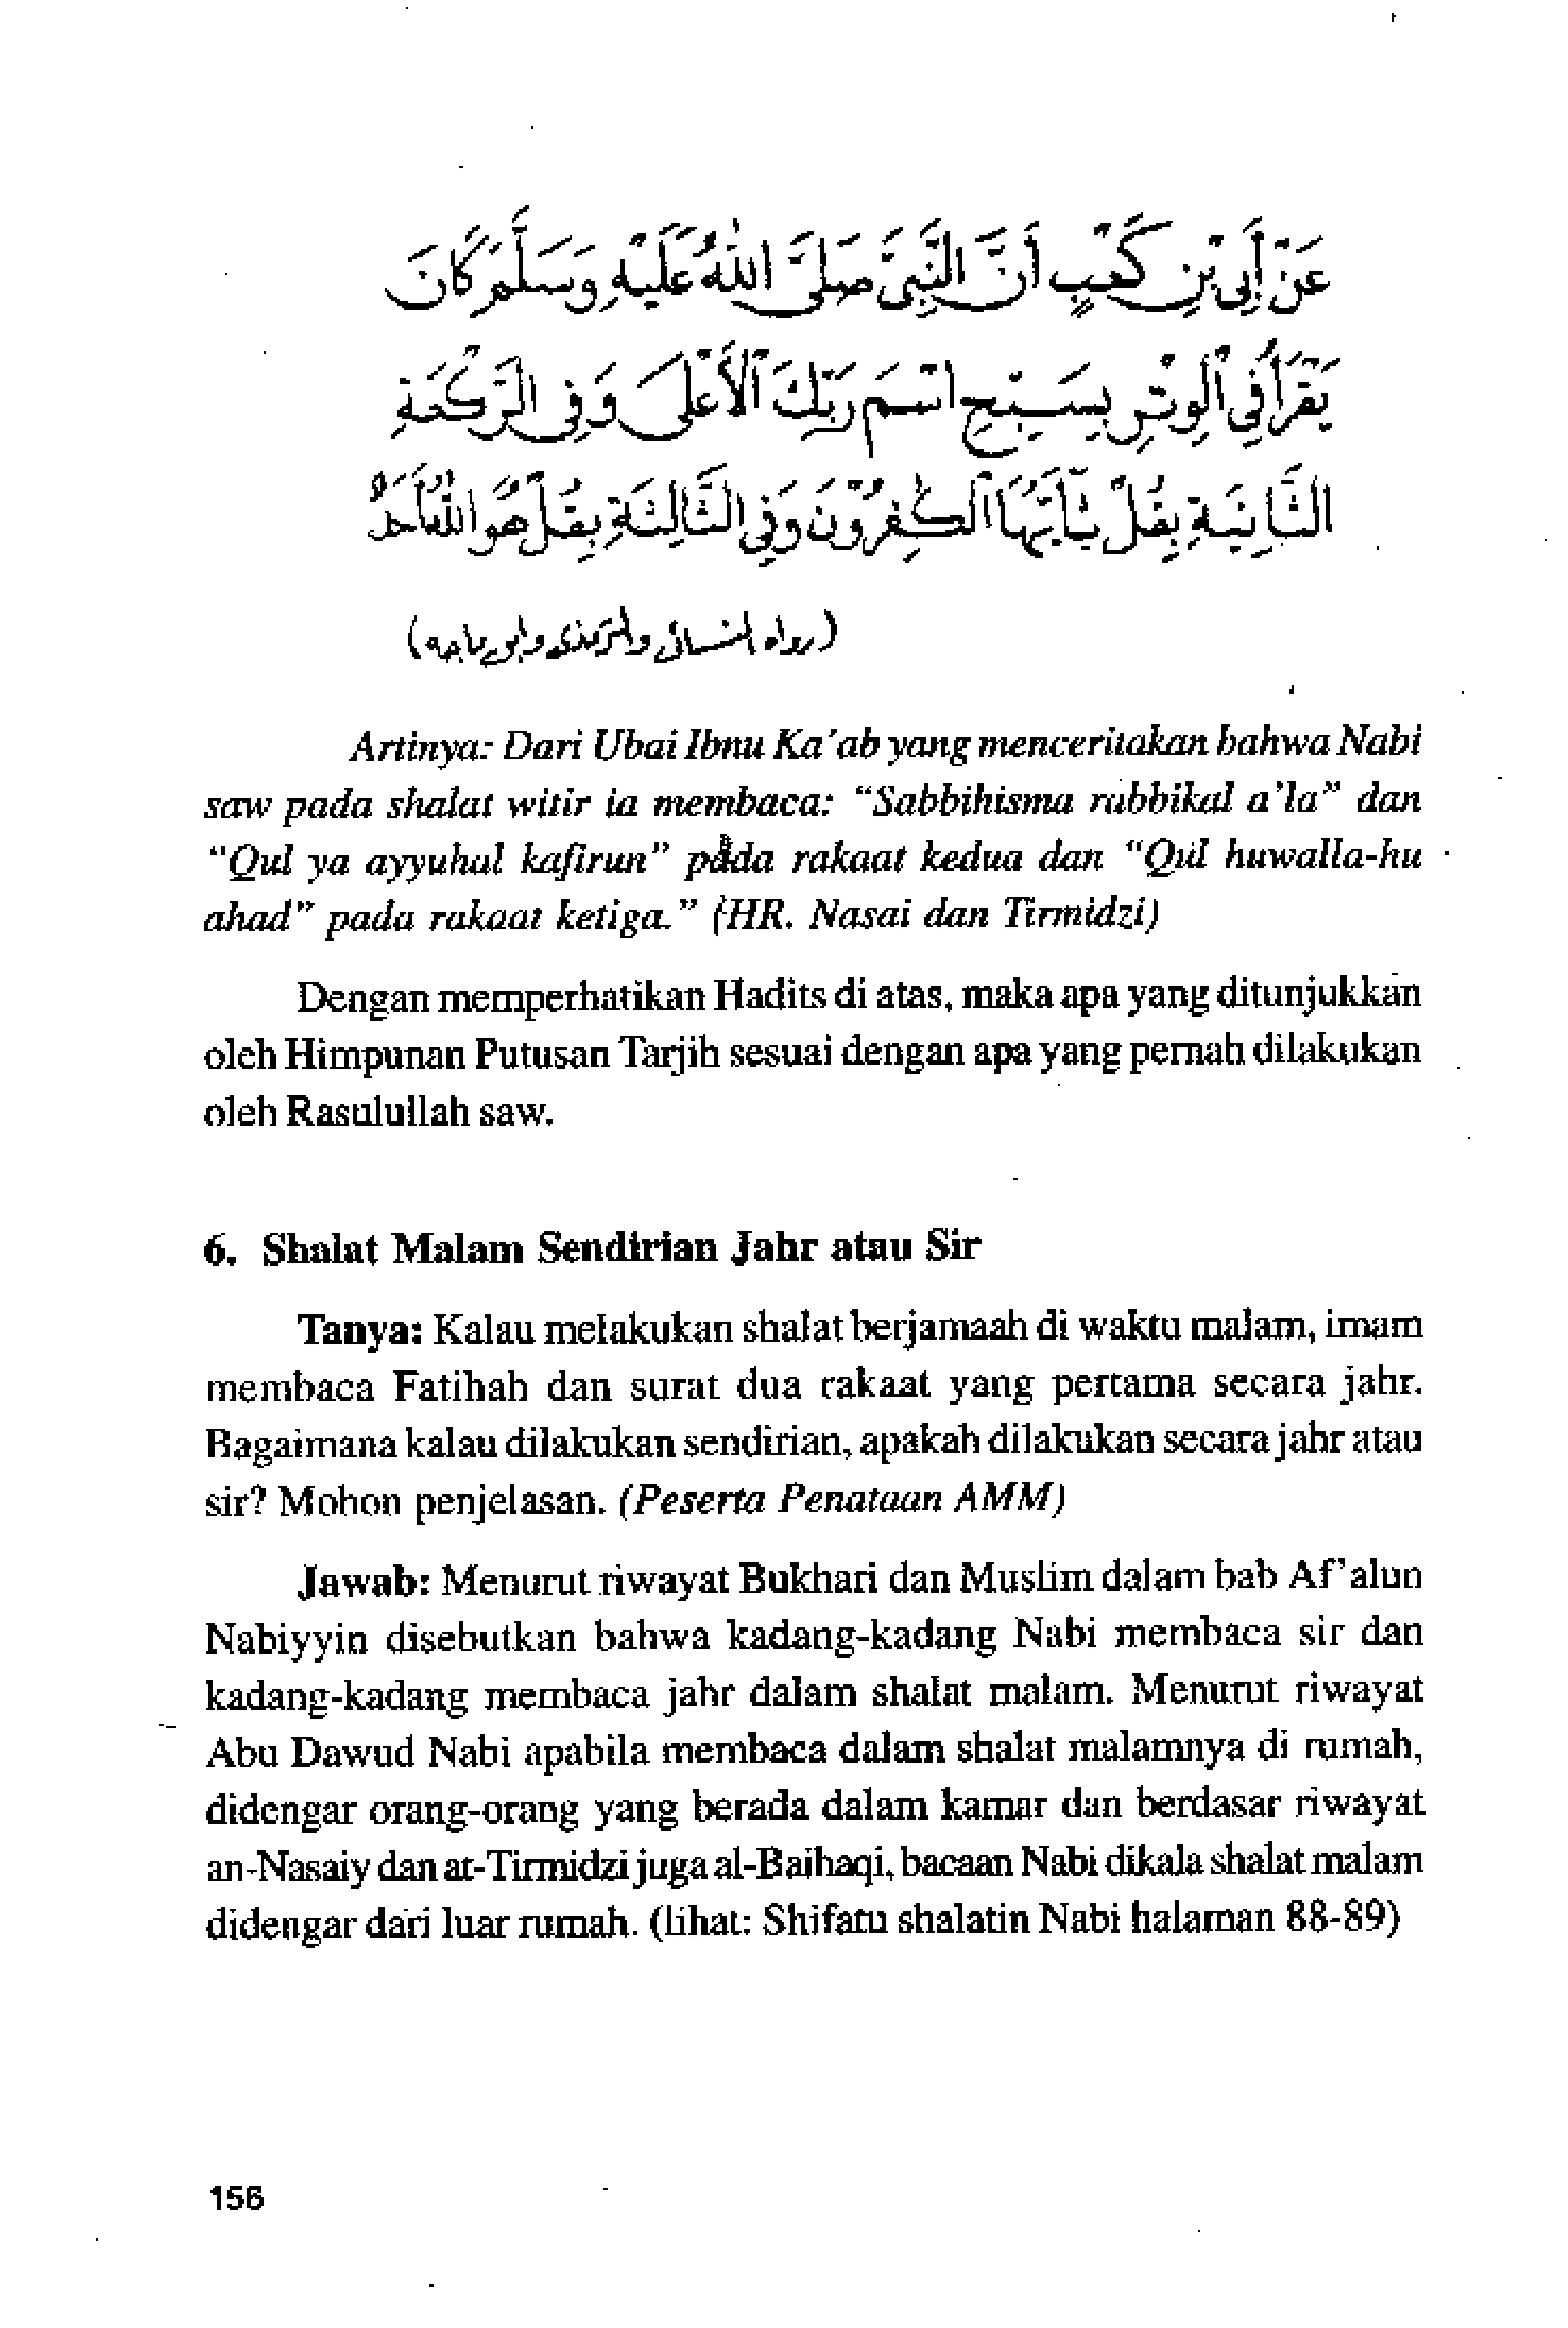 عَنْ أُبَيِّ بْنِ كَعْبٍ أَنَّ النَّبِيَّ صَلَّى اللّٰهُ عَلَيْهِ وَسَلَّمَ كَانَ
يَقْرَأُ فِي الْوِتْرِ بِسَبِّحِ اسْمَ رَبِّكَ الْأَعْلَى وَفِي الرَّكْعَةِ
الثَّانِيَةِ بِقُلْ يٰأَيُّهَا الْكٰفِرُوْنَ وَفِي الثَّالِثَةِ بِقُلْ هُوَ اللّٰهُ أَحَدٌ
(رواه النسائى والترمذى وابن ماجه)
Artinya: Dari Ubai Ibnu Ka'ab yang menceritakan bahwa Nabi
saw pada shalat witir ia membaca: "Sabbihisma rabbikal a'la" dan
"Qul ya ayyuhal kafirun" pada rakaat kedua dan "Qul huwalla-hu
ahad" pada rakaat ketiga." (HR. Nasai dan Tirmidzi)
Dengan memperhatikan Hadits di atas, maka apa yang ditunjukkan
oleh Himpunan Putusan Tarjih sesuai dengan apa yang pernah dilakukan
oleh Rasulullah saw.
6. Shalat Malam Sendirian Jahr atau Sir
Tanya: Kalau melakukan shalat berjamaah di waktu malam, imam
membaca Fatihah dan surat dua rakaat yang pertama secara jahr.
Bagaimana kalau dilakukan sendirian, apakah dilakukan secara jahr atau
sir? Mohon penjelasan. (Peserta Penataan AMM)
Jawab: Menurut riwayat Bukhari dan Muslim dalam bab Af'alun
Nabiyyin disebutkan bahwa kadang-kadang Nabi membaca sir dan
kadang-kadang membaca jahr dalam shalat malam. Menurut riwayat
Abu Dawud Nabi apabila membaca dalam shalat malamnya di rumah,
didengar orang-orang yang berada dalam kamar dan berdasar riwayat
an-Nasaiy dan at-Tirmidzi juga al-Baihaqi, bacaan Nabi dikala shalat malam
didengar dari luar rumah. (lihat: Shifatu shalatin Nabi halaman 88-89)
156